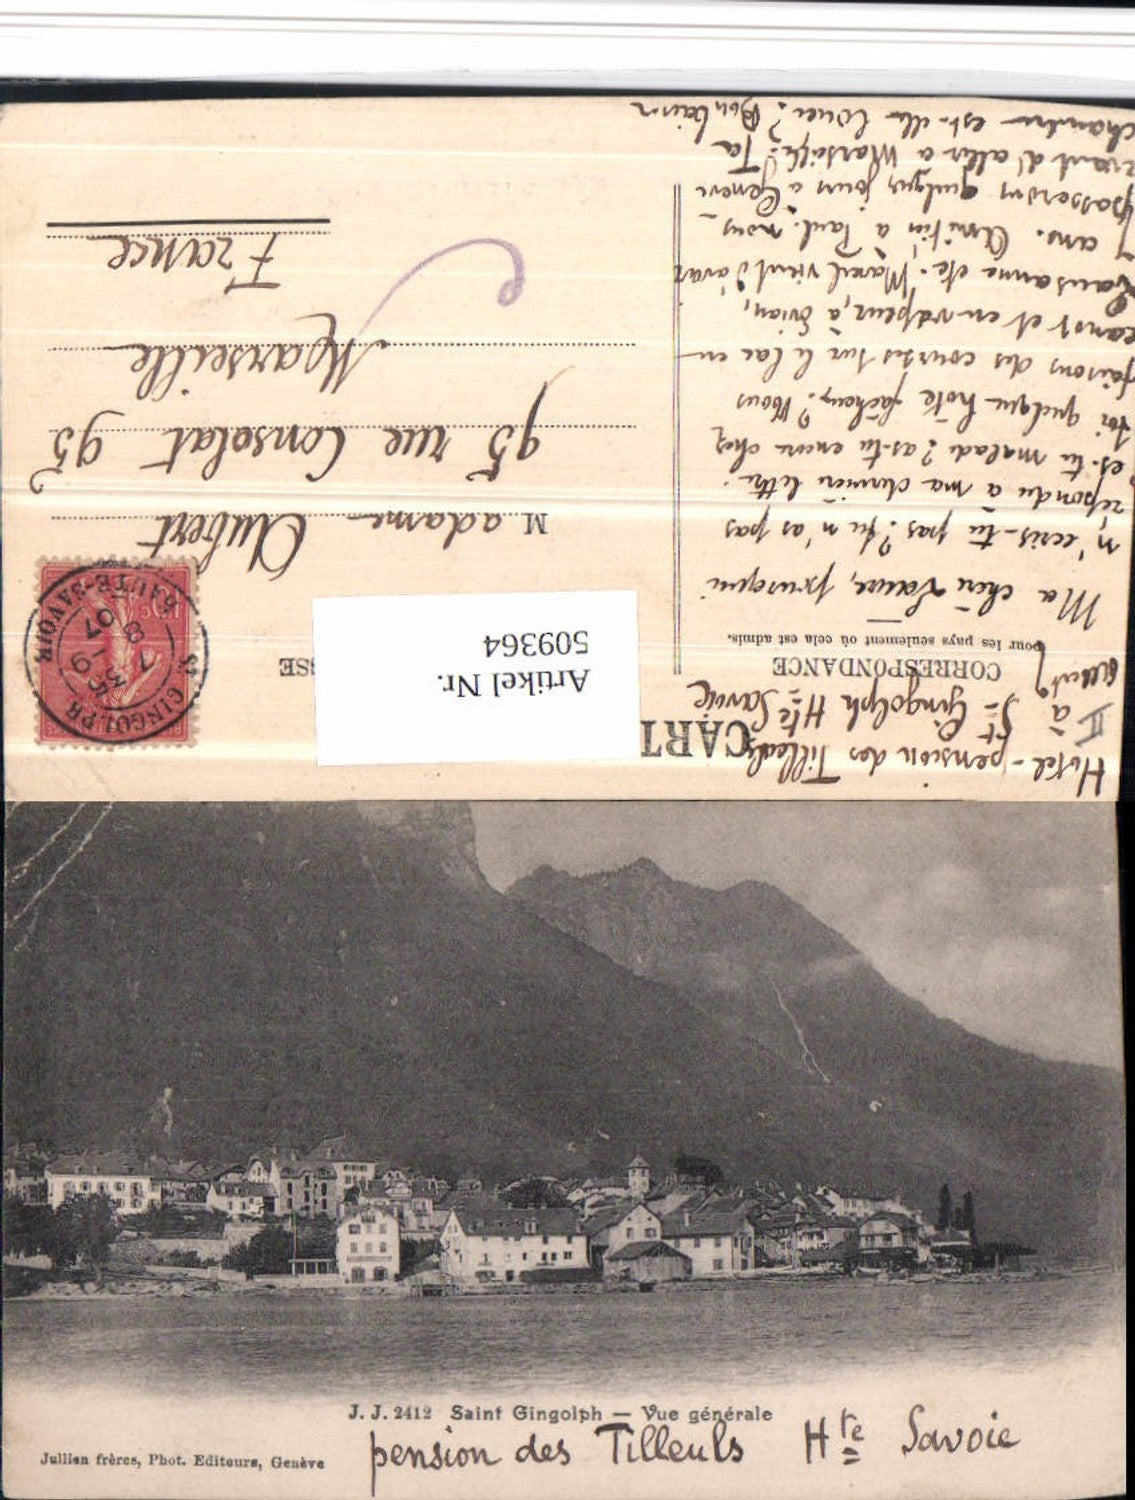 Hotel-pension des Tilleuls
à St Gingolph Hte Savoie
II
CART
CORRESPONDANCE
pour les pays seulement où cela est admis.
Ma chère Laure, pourquoi
n'ecris-tu pas? Tu n'as pas
répondu à ma dernière lettre.
es-tu malade? as-tu encore chez
toi quelque hote fâcheux? Nous
faisons des courses sur le lac en
canot et en vapeur, à Evian,
Lausanne etc. Marcel vient d'avoir
7 ans. Amitiés à Paul. nous
passerons quelques jours à Genève
avant d'aller à Marseille. Ta
chambre est-elle louée?
SSE
Artikel Nr.
509364
ST GINGOLPH
HAUTE-SAVOIE
7 -9
07
M adame Aubert
95 rue Consolat 95
Marseille
France
J. J. 2412 Saint Gingolph — Vue générale
Jullien frères, Phot. Editeurs, Genève
pension des Tilleuls Hte Savoie